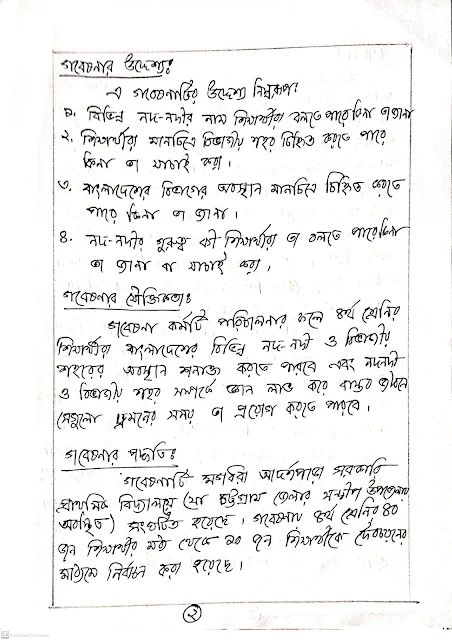 গবেষনার উদ্দেশ্যঃ
এ গবেষনাটির উদ্দেশ্য নিম্নরূপঃ
১. বিভিন্ন নদ-নদীর নাম শিক্ষার্থীরা বলতে পারে কিনা তা জানা
২. শিক্ষার্থীরা মানচিত্রে বিভাগীয় শহর চিহ্নিত করতে পারে
কিনা তা যাচাই করা।
৩. বাংলাদেশের বিভাগের অবস্থান মানচিত্রে চিহ্নিত করতে
পারে কিনা তা জানা।
৪. নদ-নদীর গুরুত্ব কী শিক্ষার্থীরা তা বলতে পারে কিনা
তা জানা বা যাচাই করা।
গবেষনার যৌক্তিকতাঃ
গবেষনা কর্মটি পরিচালনার ফলে ৪র্থ শ্রেনির
শিক্ষার্থীরা বাংলাদেশের বিভিন্ন নদ-নদী ও বিভাগীয়
শহরের অবস্থান শনাক্ত করতে পারবে এবং নদনদী
ও বিভাগীয় শহর সম্পর্কে জ্ঞান লাভ করে বাস্তব জীবনে
সেগুলো ভ্রমনের সময় তা প্রয়োগ করতে পারবে।
গবেষনার পদ্ধতিঃ
গবেষনাটি মগধরা আদর্শপাড়া সরকারি
প্রাথমিক বিদ্যালয়ে (যা চট্টগ্রাম জেলার সন্দ্বীপ উপজেলায়
অবস্থিত) সংঘটিত হয়েছে। গবেষনায় ৪র্থ শ্রেনির ৪০
জন শিক্ষার্থীর মধ্য থেকে ১০ জন শিক্ষার্থীকে দৈবচয়নের
মাধ্যমে নির্বাচন করা হয়েছে।
২